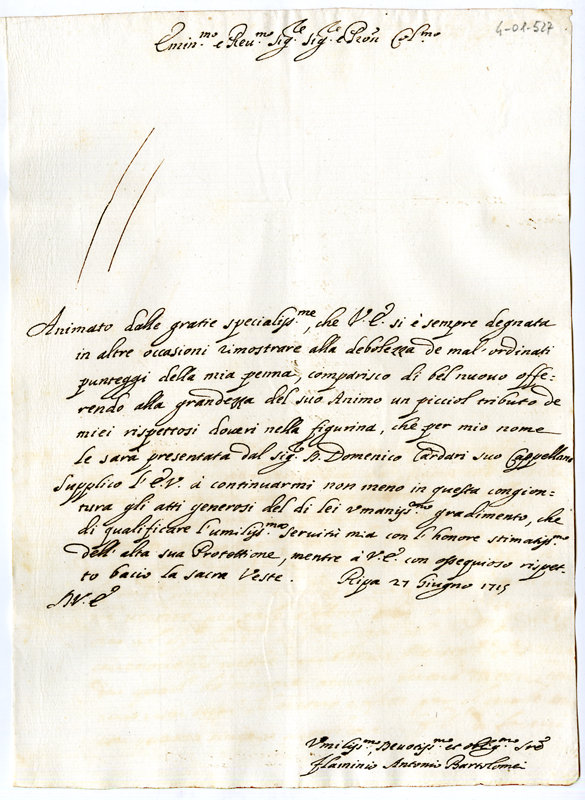 4-01-527
Emin.mo e Reu.mo Sig.re Sig.re e Pron Col.mo
Animato dalle gratie specialiss.me, che V. E. si è sempre degnata
in altre occasioni rimostrare alla debolezza de mal'ordinati
punteggi della mia penna, comparisco di bel nuovo offe-
rendo alla grandezza del suo Animo un picciol tributo de
miei rispettosi doueri nella figurina, che per mio nome
le sarà presentata dal sig. D. Domenico Cardari suo Cappellano
Supplico l'E.V. à continuarmi non meno in questa congion-
tura gli atti generosi del di lei vmaniss.mo gradimento, che
di qualificare l'umiliss.mo seruitù mia con l'honore stimatiss.mo
dell'alta sua Protettione, mentre à V.E. con ossequioso rispet-
to bacio la sacra Veste. Ripa 27 Giugno 1715
D.V.E.
Vmiliss.mo, Deuotiss.mo et obblig.mo
Flaminio Antonio Bartolomei